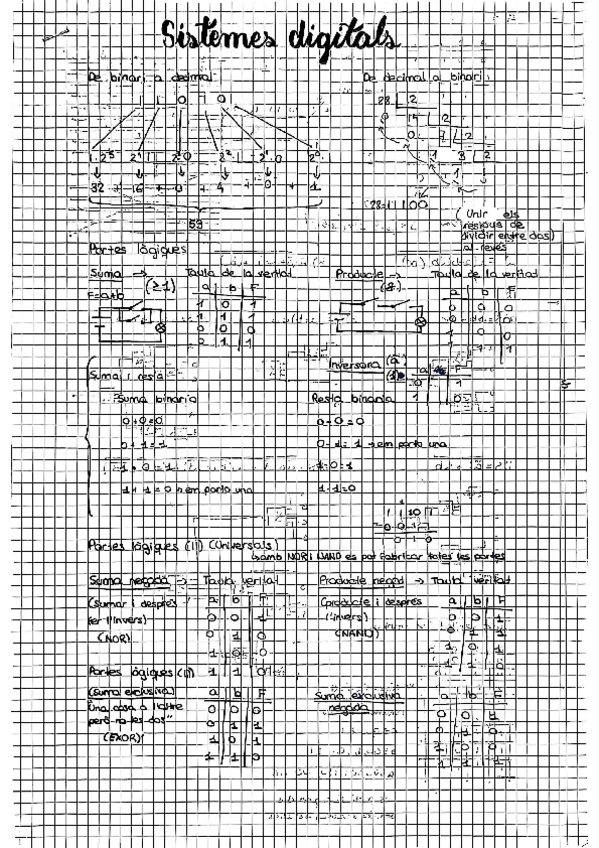 Sistemes digitals
De binari a decimal
De decimal a binari
1 1 0 1 0
28 2
32 + 16 + 0 + 4 + 0 + 1
59
28=11100
(Unir els
residus de
dividir entre dos)
al revés
Portes lògiques
Suma → Taula de la veritat
(≥1)
a b F
1 0 1
1 1 1
0 0 0
0 1 1
Producte → Taula de la veritat
(&)
a b F
0 0 0
1 0 0
1 1 1
Inversora
a F
0 1
1 0
Suma i resta
Suma binaria
0+0=0
0+1=1
1+0=1
1+1=0 → em porto una
Resta binaria
0-0=0
0-1=1 → em porto una
1-0=1
1-1=0
Portes lògiques (II) (Universals)
↳ amb NOR i NAND es pot fabricar totes les portes
Suma negada → Taula veritat
(sumar i després
fer l'invers)
(NOR)
a b F
0 0 1
0 1 0
1 0 0
1 1 0
Producte negat → Taula veritat
(producte i després
l'invers)
(NAND)
a b F
0 0 1
0 1 1
1 0 1
1 1 0
Portes lògiques (II)
(Suma exclusiva)
"Una cosa o l'altre
però no les dos"
(EXOR)
a b F
0 0 0
0 1 1
1 0 1
1 1 0
Suma exclusiva
negada
a b F
0 0 1
0 1 0
1 0 0
1 1 1